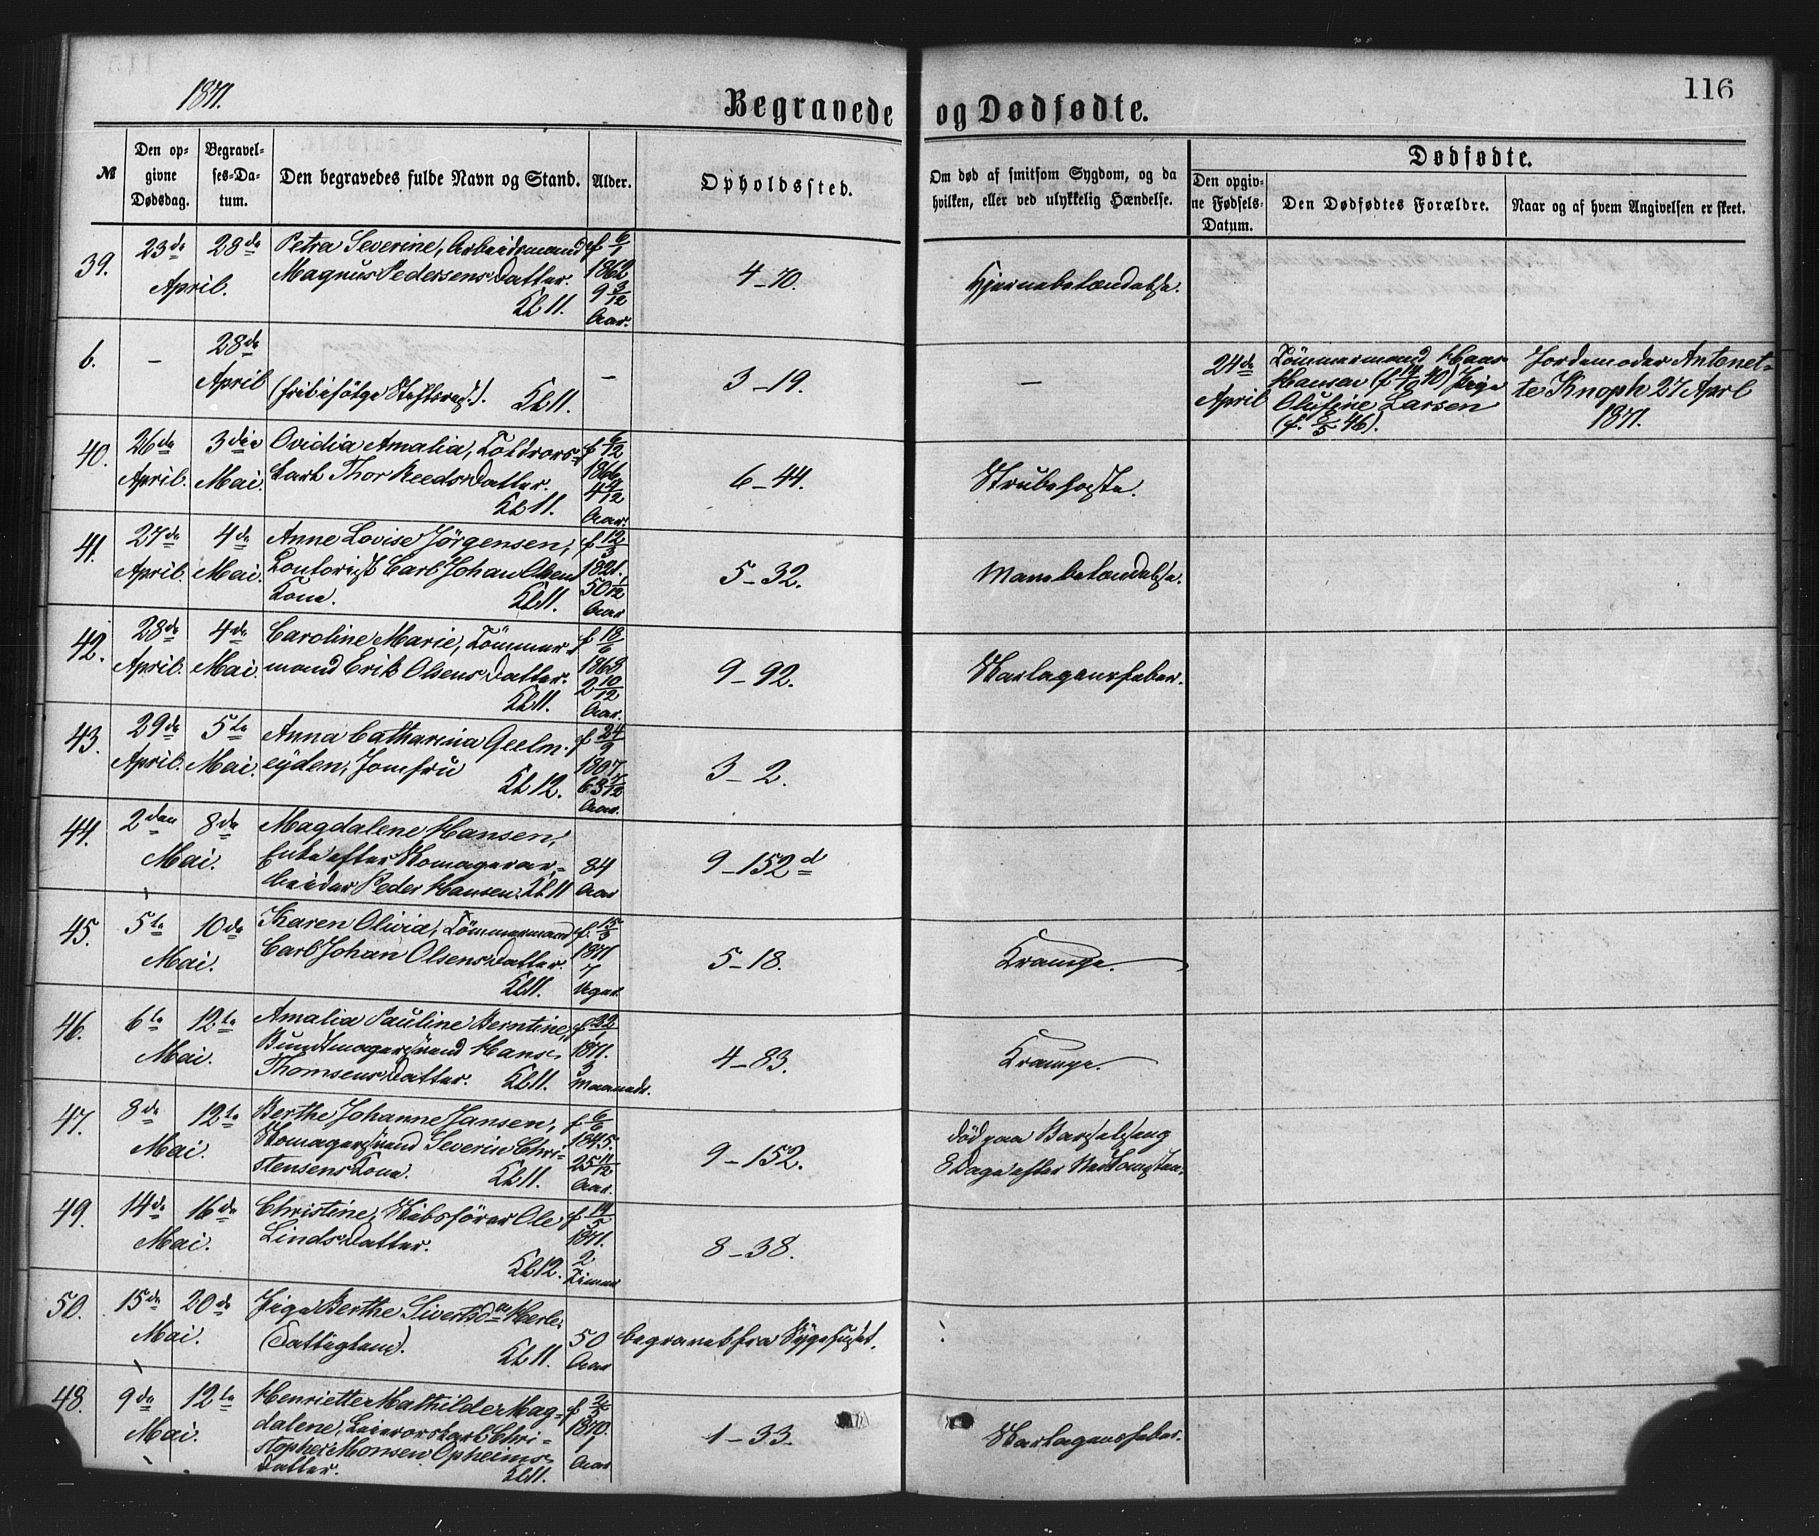 1871.
116
Begravede og Dødfødte.
№
Den op-
givne
Dødsdag.
Begravel-
ses-Da-
tum.
Den begravedes fulde Navn og Stand.
Alder.
Opholdssted.
Om død af smitsom Sygdom, og da
hvilken, eller ved ulykkelig Hændelse.
Dødfødte.
Den opgiv-
ne Fødsels-
Datum.
Den Dødfødtes Forældre.
Naar og af hvem Angivelsen er skeet.
39.
23de
April.
28de
Petra Severine, Arbeidsmand
Magnus Pedersens Datter.
Kl 11.
f 6/1
1862
9 3/12
Aar.
4-70.
Hjernebetændelse.
6.
-
28de
April
(fri ifølge Skiftsregl.). Kl 11.
-
3-19.
-
24de
April
Tömmermand Hans
Hansen (f 14/10 40) Pige
Olufine Larsen
(f. 2/5 46).
Jordemoder Antonet-
te Knoph 27 April
1871.
40.
26de
April.
3die
Mai.
Ovidia Amalia, Toldrors-
karl Thor Reeds Datter.
Kl 11.
f 6/12
1866
4 4/12
Aar.
6-44.
Strubehoste.
41.
27de
April.
4de
Mai.
Anne Lovise Jörgensen,
Contorist Carl Johan Olsens
Kone. Kl 11.
f 12/3
1821.
50 1/12
Aar
5-32.
Mavebetændelse.
42.
28de
April.
4de
Mai.
Caroline Marie, Tömmer-
mand Erik Olsens Datter.
Kl 11.
f 18/6
1868
2 10/12
Aar.
9-92.
Skarlagensfeber.
43.
29de
April.
5te
Mai.
Anna Catharina Geelm-
eyden, Jomfru
Kl 12.
f 24/9
1807
63 7/12
Aar.
3-2.
44.
2den
Mai.
8de
Magdalene Hansen,
Enke efter Skomagerar-
beider Peder Hansen. Kl 11
84
Aar
9-152 d
45.
5te
Mai.
10de
Karen Olivia, Tömmermand
Carl Johan Olsens Datter.
Kl 11.
f. 15/3
1871
7
Uger.
5-18.
Krampe.
46.
6te
Mai.
12te
Amalia Pauline Berntine,
Bundtmagersvend Hans
Thomsens Datter. Kl 11.
f 22/1
1871.
3
Maaneder.
4-83.
Krampe.
47.
8de
Mai.
12te
Berthe Johanne Jansen,
Skomagersvend Severin Chri-
stensens Kone. Kl 11.
f 6/6
1845.
25 11/12
Aar.
9-152.
död paa Barselseng
8 Dage efter Nedkomsten.
49.
14de
Mai.
16de
Christine, Skibsförer Ole
Linds Datter.
Kl 12.
f 14/5
1871.
2
Timer
8-38.
50.
15de
Mai.
20de
Pige Berthe Sivertsdr Herle
(Fattiglem). Kl 11.
50
Aar
begravet fra Sygehuset.
48.
9de
Mai.
12te
Henriette Mathilde Mag-
dalene, Leierorskarl Chri-
stopher Monsen Opheims
Datter. Kl 11.
f 2/5
1870.
1
Aar
1-33.
Skarlagensfeber.